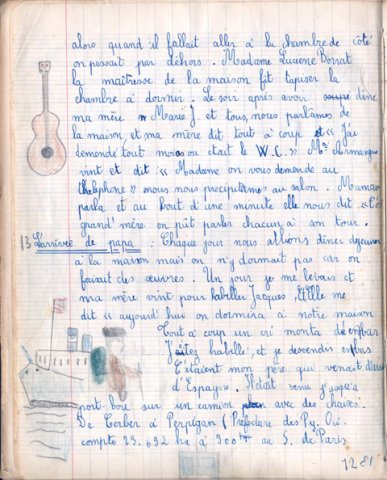 alors quand il fallait aller à la chambre de côté
on passait par dehors. Madame Lucene Borrat
la maîtresse de la maison fit tapiser la
chambre à dormir. Le soir après avoir diné
ma mère Marie J. et tous, nous parlâmes de
la maison et ma mère dit tout à coup « J'ai
demandé tout mais ou était le W.C. » Me
vint et dit « Madame on vous demande au
thelephone » nous nous precipitâmes au salon. Maman
parla et au bout d'une minute elle nous dit
grand'mère on pût parler chacun à son tour.
13 L'arrivée de papa : Chaque jour nous allions diner dejeuner
à la maison mais on n'y dormait pas car on
faisait des œuvres. Un jour je me levais et
ma mère vint pour habiller Jacques. Elle me
dit « aujourd'hui on dormira à notre maison
Tout à coup un cri monta d'enbas
habillé, et je descendis enbas
C'étaient mon père qui venait
d'Espagne. Il était venu jusqu'à
port-bou sur un camion avec des chaises.
De Cerber à Perpigan (Prefecture des Py. Ori.
compte 73.692 ha à 900 km au S. de Paris